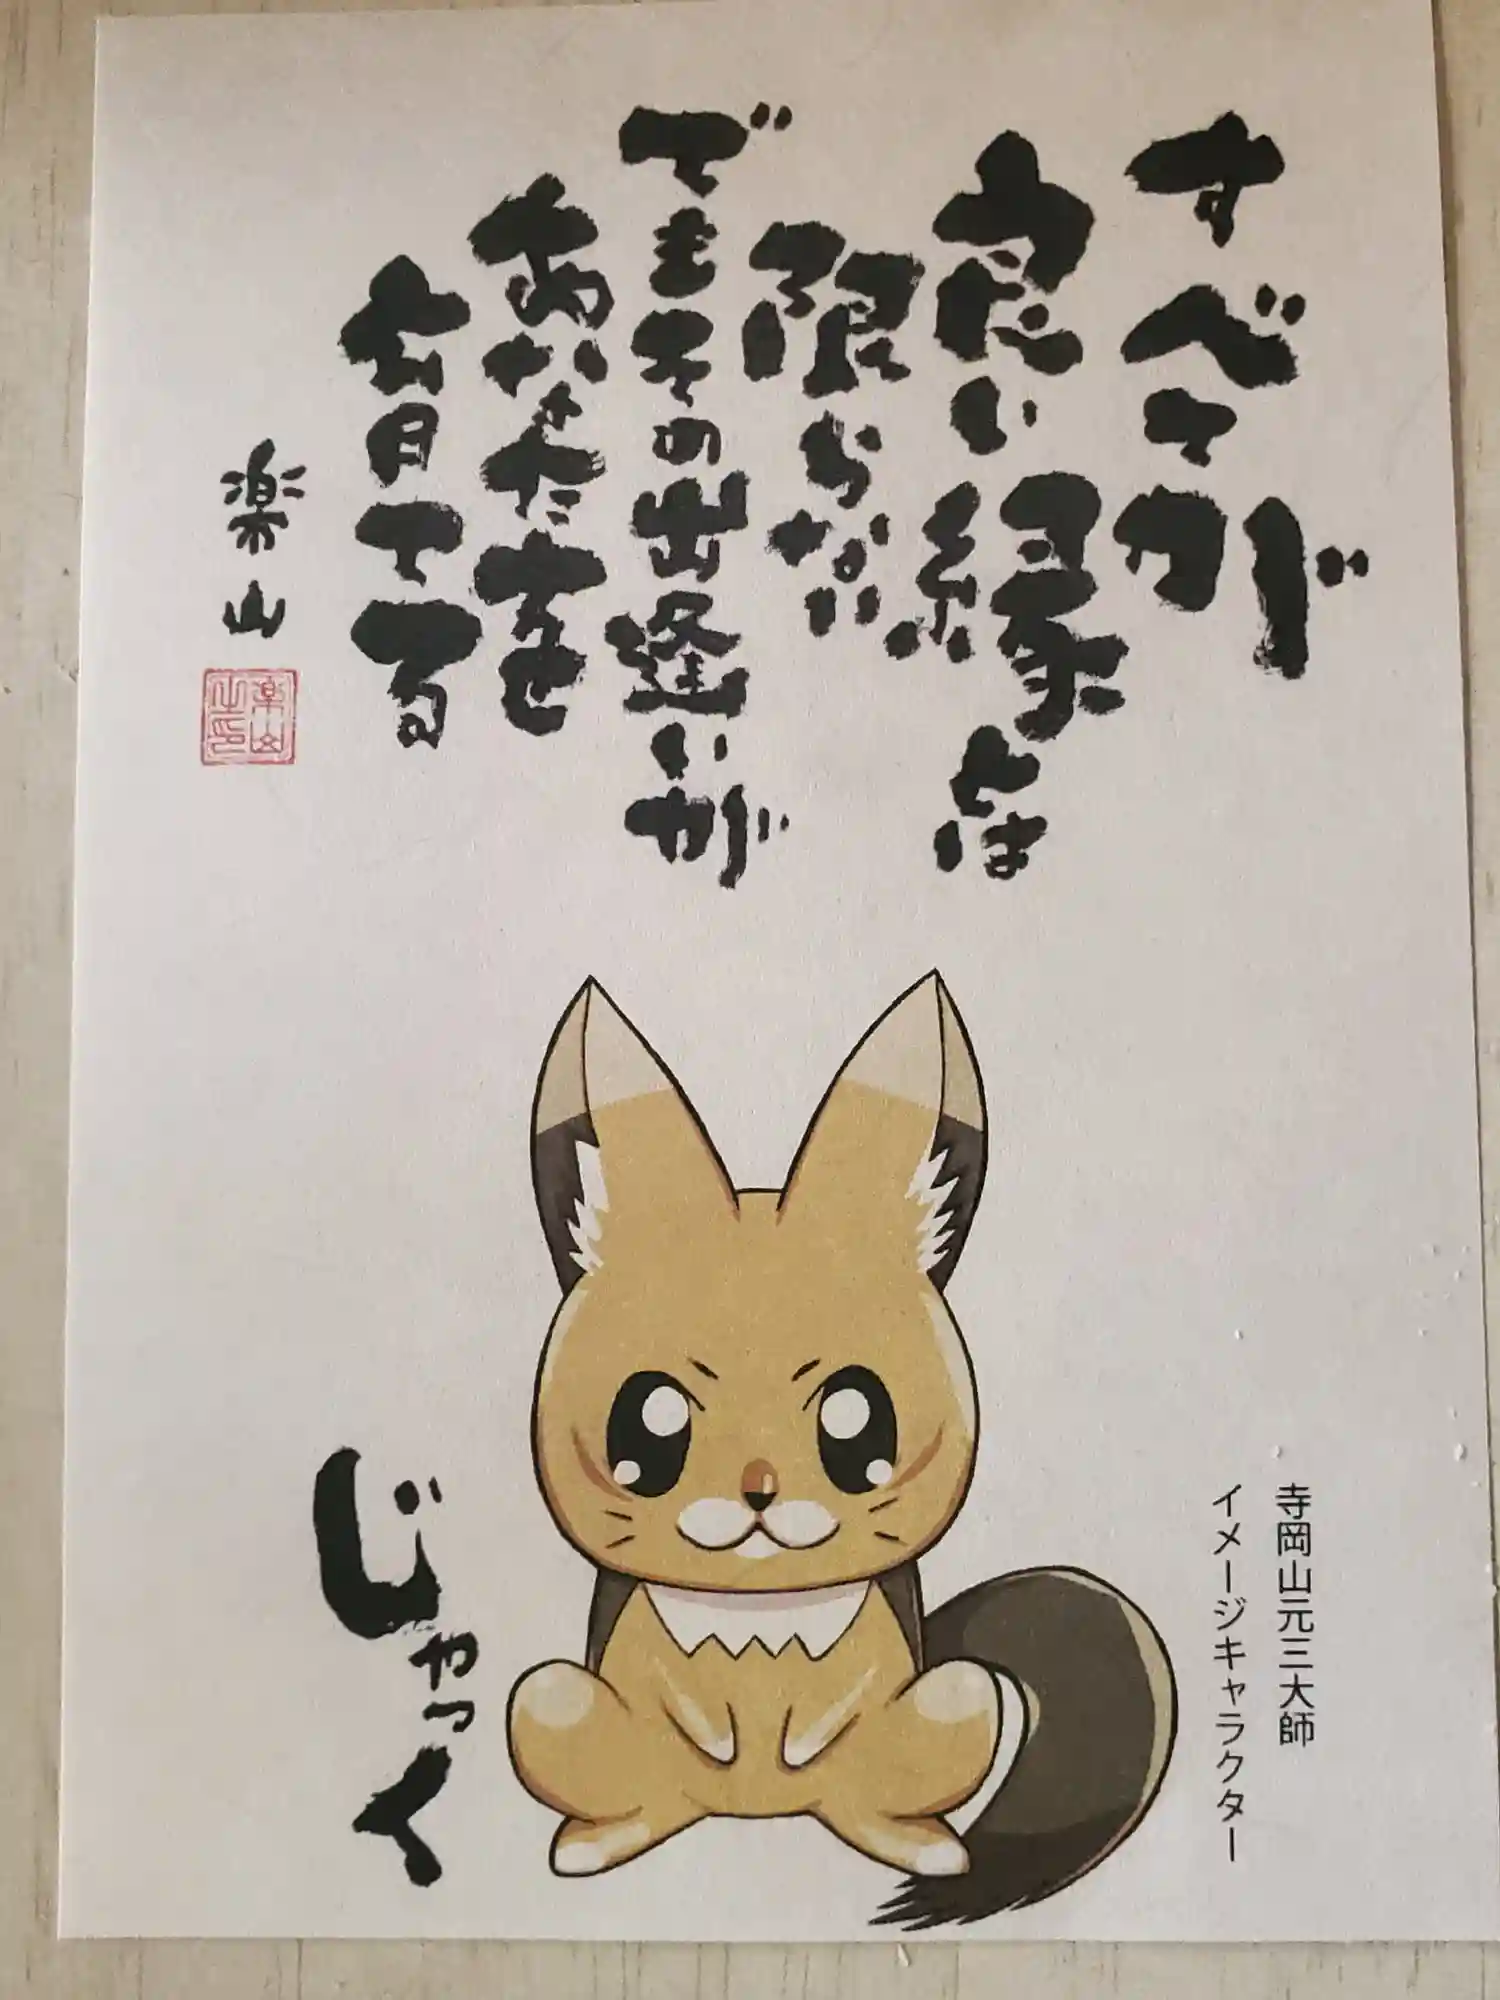 すべてが
良い縁とは
限らない
でもその出逢いが
あなたを
育てる
楽山
楽山之印
寺岡山元三大師
イメージキャラクター
じゃっく